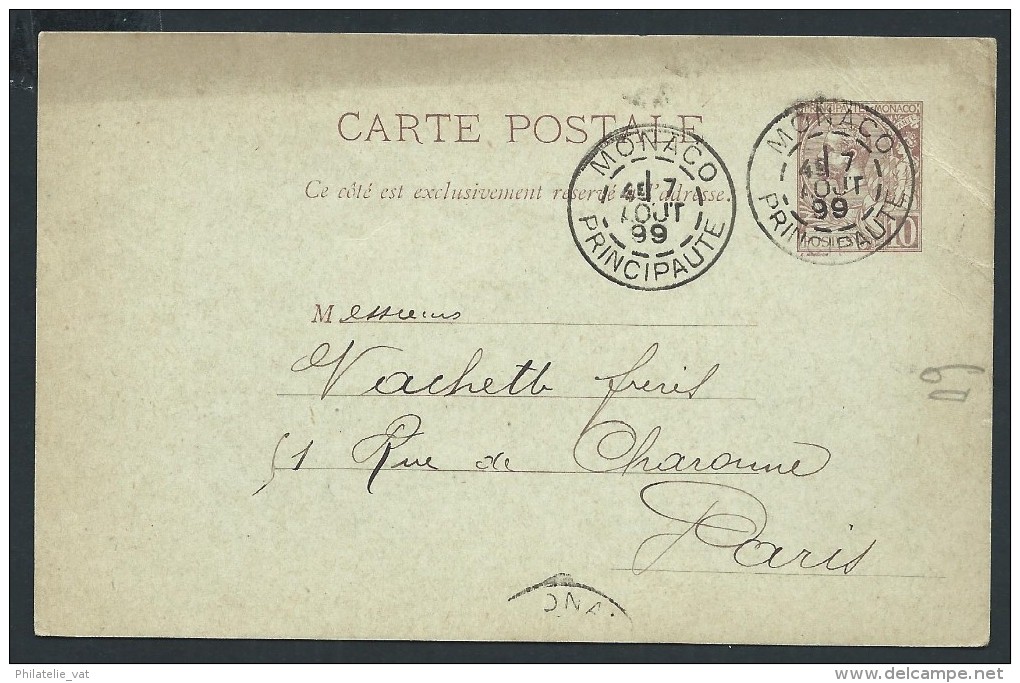 CARTE POSTALE
Ce côté est exclusivement réservé à l'adresse.
MONACO
4E 7
AOUT
99
PRINCIPAUTE
PRINCIPAUTE DE MONACO
MONACO
4E 7
AOUT
99
PRINCIPAUTE
POSTES
10
Messieurs
Vachette frères
51 Rue de Charonne
Paris
ONA
Philatelie_vat
delcampe.net